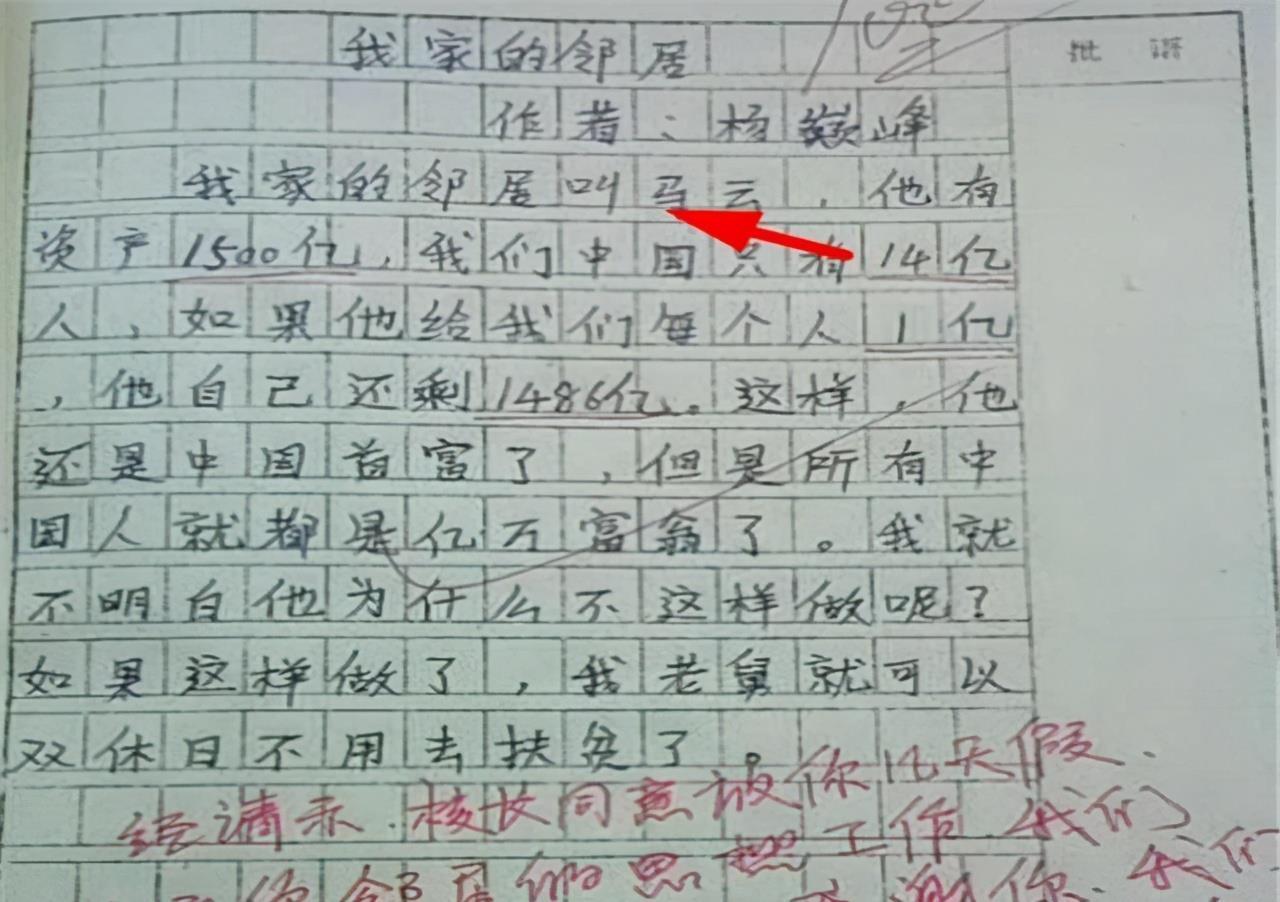 我家的邻居
批 语
作者:杨巅峰
我家的邻居叫马云,他有
资产1500亿,我们中国只有14亿
人,如果他给我们每个人1亿
,他自己还剩1486亿。这样,他
还是中国首富了,但是所有中
国人就都是亿万富翁了。我就
不明白他为什么不这样做呢?
如果这样做了,我老舅就可以
双休日不用去扶贫了。
经请示.校长同意放你几天假.
你邻居做思想工作.我们
谢你.我们